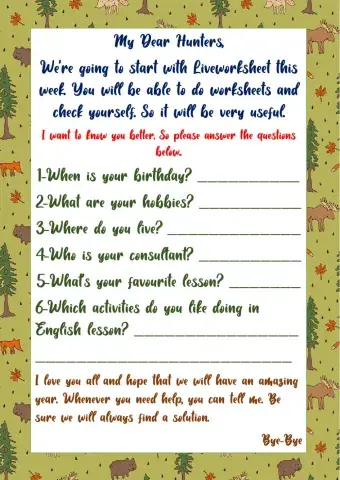 My Dear Hunters,
We're going to start with Liveworksheet this
week. You will be able to do worksheets and
check yourself. So it will be very useful.
I want to know you better. So please answer the questions
below.
1-When is your birthday? _______________
2-What are your hobbies? _______________
3-Where do you live? ___________________
4-Who is your consultant? ______________
5-What's your favourite lesson? __________
6-Which activities do you like doing in
English lesson? ________________________
_____________________________________
I love you all and hope that we will have an amazing
year. Whenever you need help, you can tell me. Be
sure we will always find a solution.
Bye-Bye